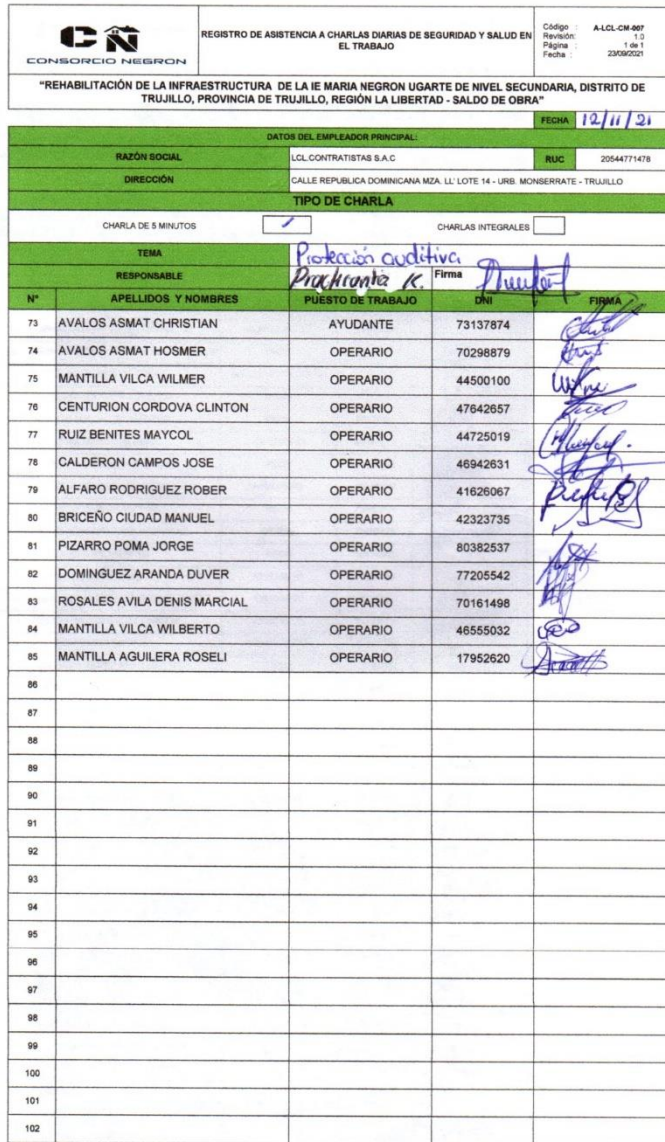 CN
CONSORCIO NEGRON
REGISTRO DE ASISTENCIA A CHARLAS DIARIAS DE SEGURIDAD Y SALUD EN
EL TRABAJO
Código : A-LCL-CM-007
Revisión: 1.0
Página : 1 de 1
Fecha : 23/09/2021
“REHABILITACIÓN DE LA INFRAESTRUCTURA DE LA IE MARIA NEGRON UGARTE DE NIVEL SECUNDARIA, DISTRITO DE
TRUJILLO, PROVINCIA DE TRUJILLO, REGIÓN LA LIBERTAD - SALDO DE OBRA”
FECHA 12/11/21
DATOS DEL EMPLEADOR PRINCIPAL:
RAZÓN SOCIAL LCL CONTRATISTAS S.A.C RUC 20544771478
DIRECCIÓN CALLE REPUBLICA DOMINICANA MZA. LL' LOTE 14 - URB. MONSERRATE - TRUJILLO
TIPO DE CHARLA
CHARLA DE 5 MINUTOS CHARLAS INTEGRALES
TEMA Protección auditiva
RESPONSABLE Practicante K. Firma
N° APELLIDOS Y NOMBRES PUESTO DE TRABAJO DNI FIRMA
73 AVALOS ASMAT CHRISTIAN AYUDANTE 73137874
74 AVALOS ASMAT HOSMER OPERARIO 70298879
75 MANTILLA VILCA WILMER OPERARIO 44500100
76 CENTURION CORDOVA CLINTON OPERARIO 47642657
77 RUIZ BENITES MAYCOL OPERARIO 44725019
78 CALDERON CAMPOS JOSE OPERARIO 46942631
79 ALFARO RODRIGUEZ ROBER OPERARIO 41626067
80 BRICEÑO CIUDAD MANUEL OPERARIO 42323735
81 PIZARRO POMA JORGE OPERARIO 80382537
82 DOMINGUEZ ARANDA DUVER OPERARIO 77205542
83 ROSALES AVILA DENIS MARCIAL OPERARIO 70161498
84 MANTILLA VILCA WILBERTO OPERARIO 46555032
85 MANTILLA AGUILERA ROSELI OPERARIO 17952620
86
87
88
89
90
91
92
93
94
95
96
97
98
99
100
101
102